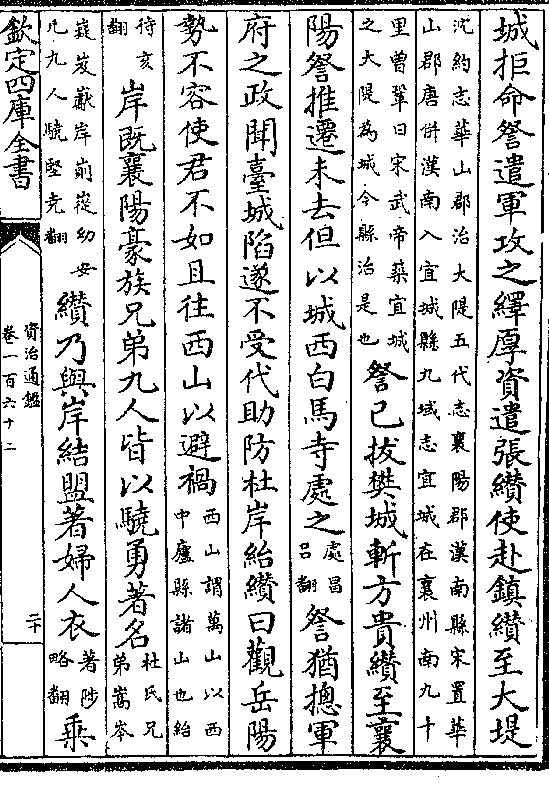 城拒命詧遣軍攻之繹厚資遣張纘使赴鎮纘至大堤
沈約志華山郡治大隄五代志襄陽郡漢南縣宋置華
山郡唐併漢南入宜城縣九域志宜城在襄州南九十
里曾鞏曰宋武帝築宜城
之大隄為城今縣治是也
詧已拔樊城斬方貴纘至襄
陽詧推遷未去但以城西白馬寺處之
處昌
呂翻
詧猶摠軍
府之政聞臺城陷遂不受代助防杜岸紿纘曰觀岳陽
勢不容使君不如且往西山以避禍
西山謂萬山以西
中廬縣諸山也紿
待亥
翻
岸既襄陽豪族兄弟九人皆以驍勇著名
杜氏兄
弟嵩岑
嶷岌嶽岸崱嵸幼安
凡九人驍堅堯翻
纘乃與岸結盟著婦人衣
著陟
略翻
乘
欽定四庫全書
資治通鑑
卷一百六十二
二十